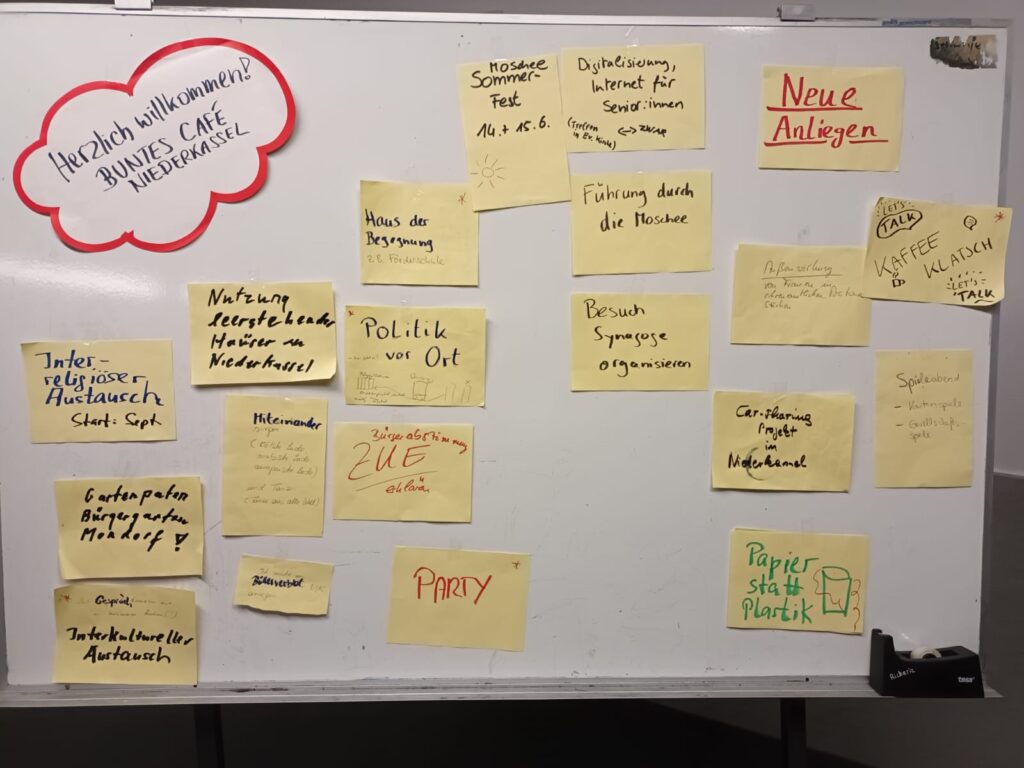 Herzlich willkommen!
BUNTES CAFÉ
NIEDERKASSEL
Moschee
Sommer-
Fest
14.+ 15.6.
Digitalisierung,
Internet für
Senior:innen
(Treffen
Neue
Anliegen
Haus der
Begegnung
z.B. Förderschule
Führung durch
die Moschee
LET'S
TALK
KAFFEE
KLATSCH
LET'S
TALK
Nutzung
leerstehender
Häuser in
Niederkassel
Politik
vor Ort
Besuch
Synagoge
organisieren
von Frauen in
Inter-
religiöser
Austausch
Start: Sept
Miteinander
und Tanzen
Bürgerabstimmung
ZUE
erklären
Car-sharing
Projekt
in
Niederkassel
Spieleabend
- Kartenspiele
- Gesellschafts-
spiele
Gartenpaten
Bürgergarten
Mondorf!
PARTY
Papier
statt
Plastik
Gespräch
Interkultureller
Austausch
Böllerverbot
tesa